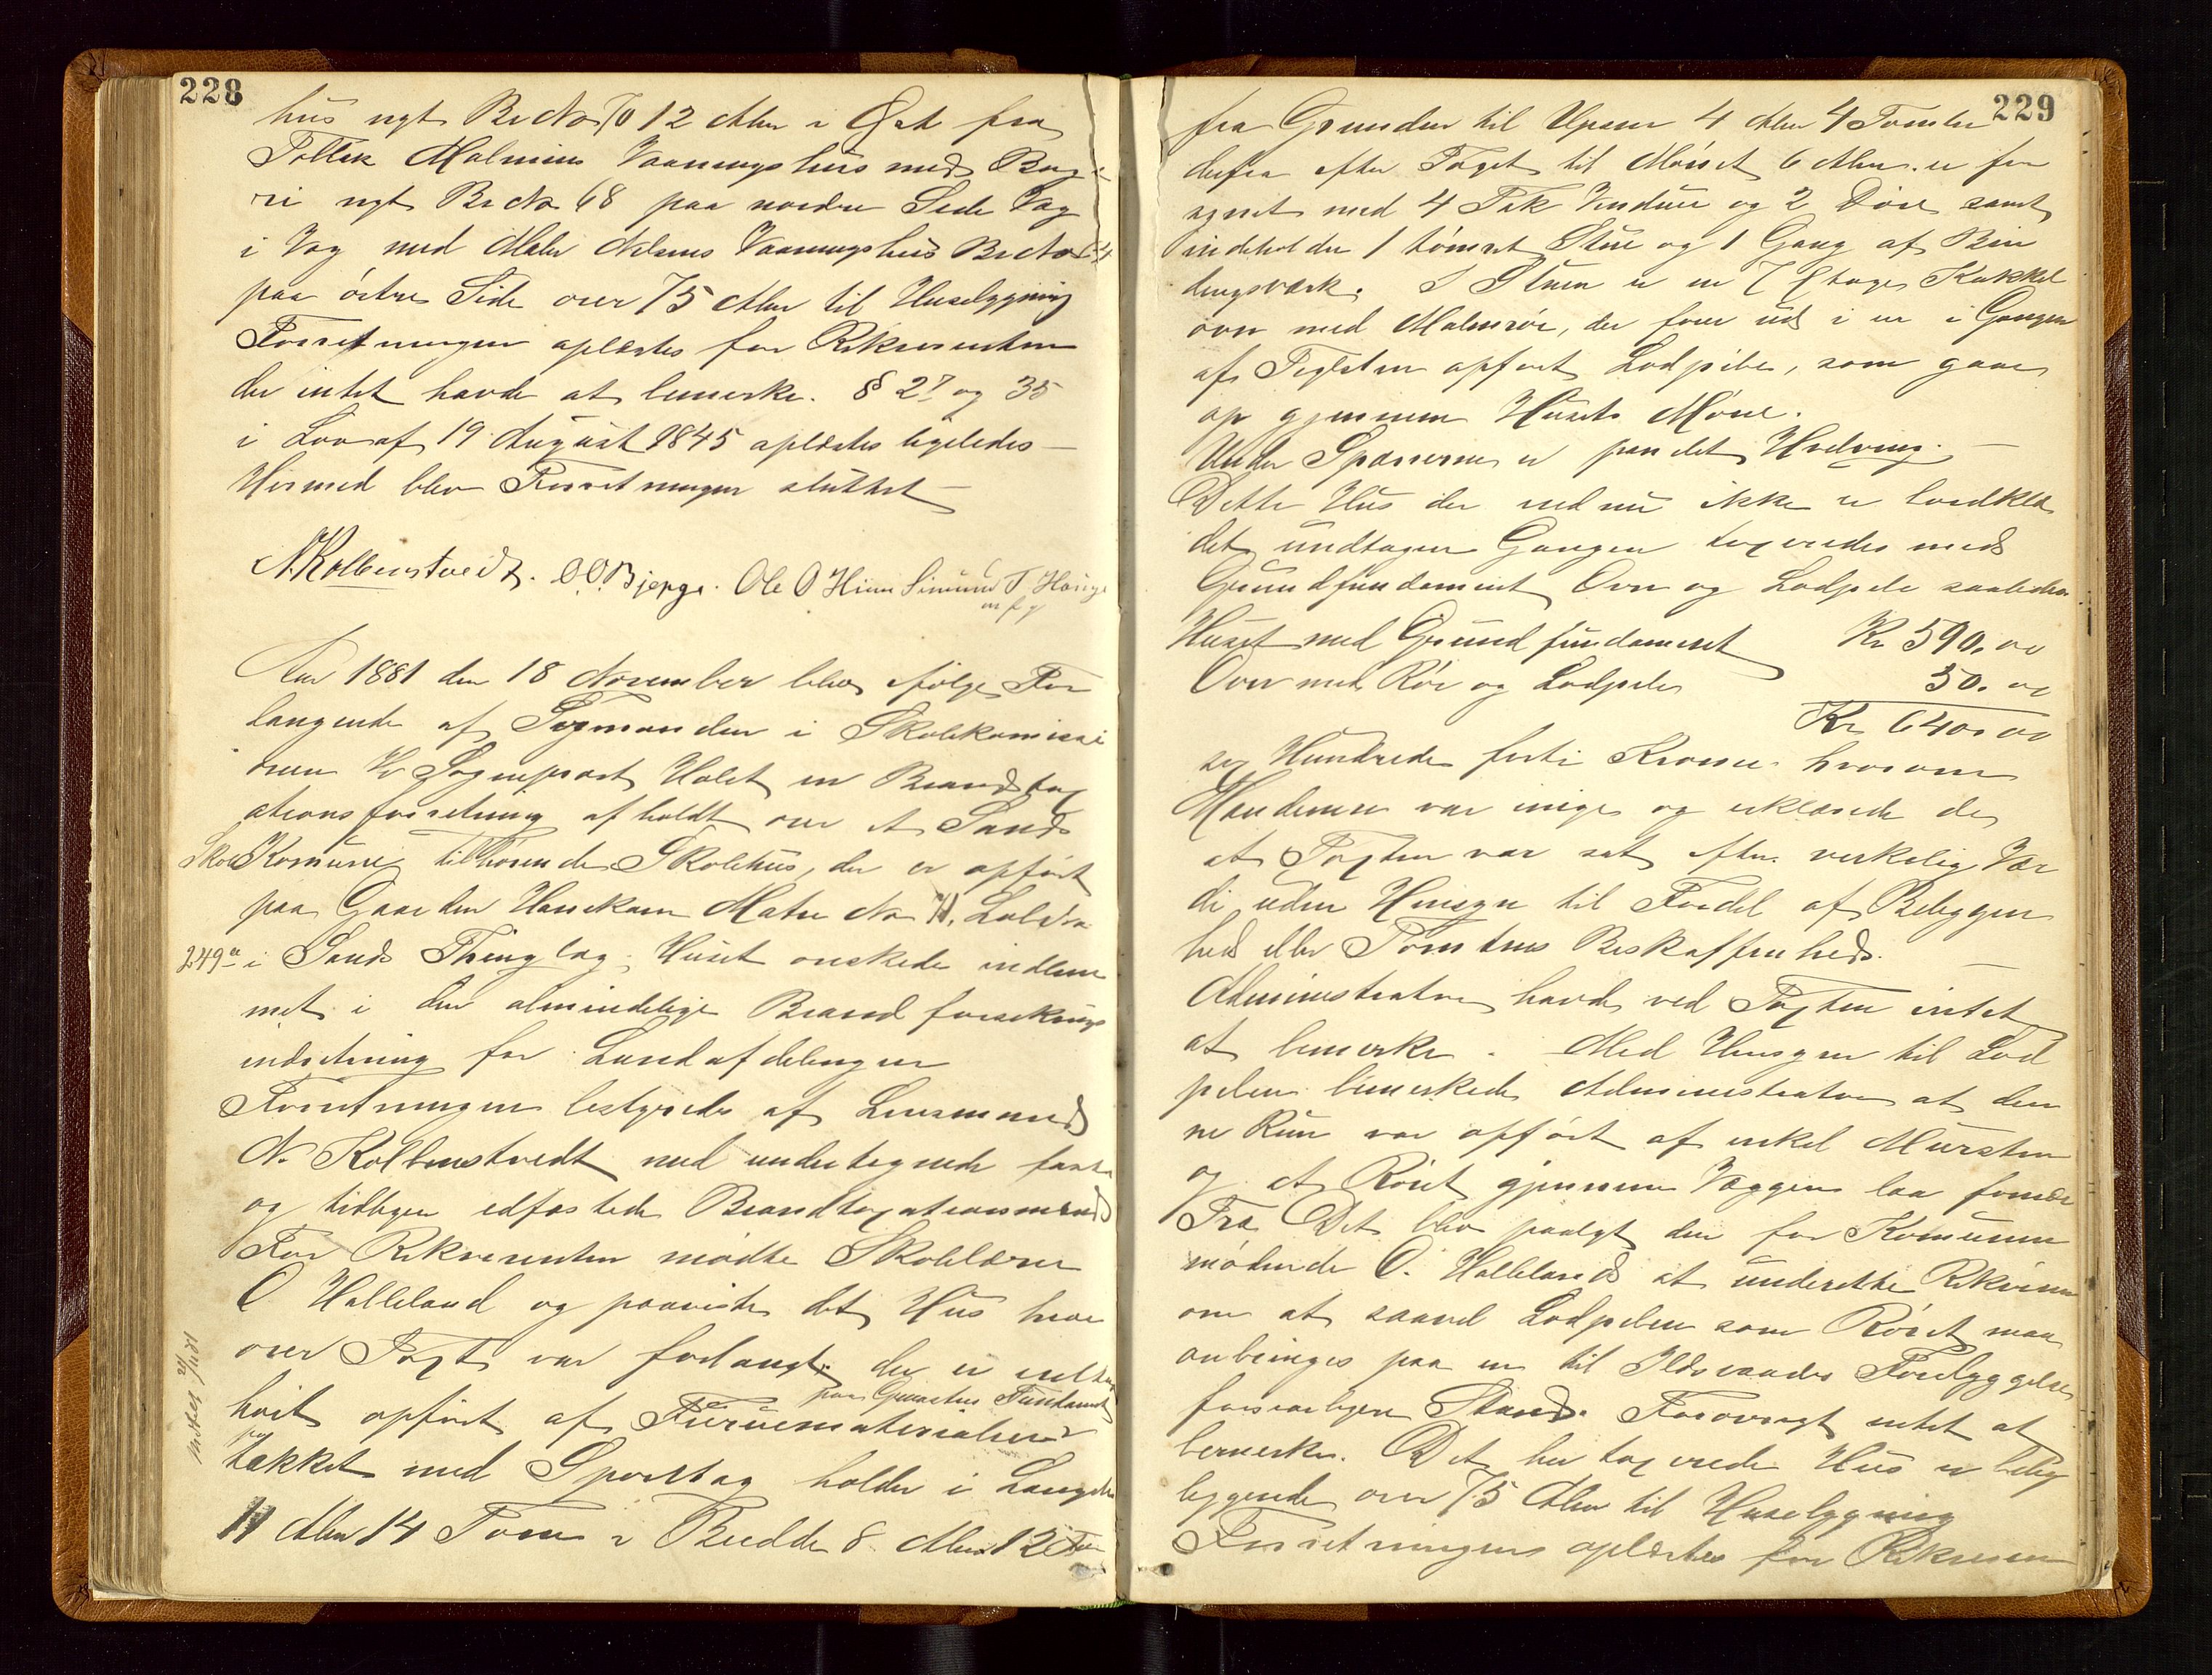 228
hus nyt Br No 70 12 Alen i Øst fra
Tollak Malmins Vaaningshus med Bage
ri nyt Br No 68 paa nordre Side Vag
i Vag med Maler Nelsens Vaaningshus Br No
paa østre Side over 75 Alen til Husebygning
Forretningen oplæstes for Rekvirenten
der intet havde at bemerke. § 27 og 35
i Lov af 19 August 1845 oplæstes ligeledes —
Hermed blev Forretningen sluttet —
N. Kolbenstvedt. O.O. Bjerge. Ole O Hiim Simund T. Hauge
m f p
Aar 1881 den 18 November blev ifølge For
langende af Formanden i Skolekomissi
onen Hr Sogneprest Holst en Brandtax
ationsforretning afholdt over et Sands
Skole Komune tilhørende Skolehus, der er opført
paa Gaarden Hanekam Matr No 11. Lobe No
249a i Sands Thinglag. Huset ønskedes indlem
met i den almindelige Brandforsikrings
indretning for Landafdelingen
Forretningen bestyredes af Lensmand
N. Kolbenstvedt med undertegnede faste
og tidligere edfæstede Brandtaxationsmænd
For Rekvirenten mødte Skolelærer
O Halleland og paaviste det Hus hvor
over Taxt var forlangt. der er
paa Fundament
hvit opført af Furuematerialier
og
tækket med Spontag holder i Længde
11 Alen 14 Tom i Bredde 8 Alen 12 Tom
229
fra Grunden til Opsen 4 Alen 4 Tomter
derfra efter Taget til Mønet 6 Alen. er for
synet med 4 Fak Vinduer og 2 Døre samt
indeholder 1 tømret Stue og 1 Gang af Bin
dingsværk. I Stuen er en 7 Etages Kakkel
ovn med Malmrør, der fører ud i en i Gangen
af Teglsten opført Lodpibe, som gaar
op gjennem Husets Møne.
Under Sparrerne er paa det Hvelving. —
Dette Hus der endnu ikke er bordklæ
det undtagen Gangen taxeredes med
Grundfundament Ovn og Lodpibe saaledes
Huset med Grundfundament Kr 590.00
Ovn med Rør og Lodpibe 50.00
Kr 640.00
sex Hundrede forti Kroner hvorom
Mændene var enige og erklærede de
at Taxten var sat efter virkelig Vær
di uden Hensyn til Fordel af Beliggen
hed eller Tomtens Beskaffenhed. —
Administrator havde ved Taxten intet
at bemerke. Med Hensyn til Lod
piben bemerkede Administrator at den
ne Kun var opført af enkel Mursten
og at Røret gjennem Væggen laa for nær
Træ. Det blev paalagt den for Komunen
mødende O. Halleland at underrette Rekviren
om at saavel Lodpiben som Røret maa
anbringes paa en til Ildsvaades Forebyggelse
forsvarligere Stand. Forøvrigt intet at
bemerke. Det her taxerede Hus er belig
liggende over 75 Alen til Husebygning
Forretningen oplæstes for Rekviren